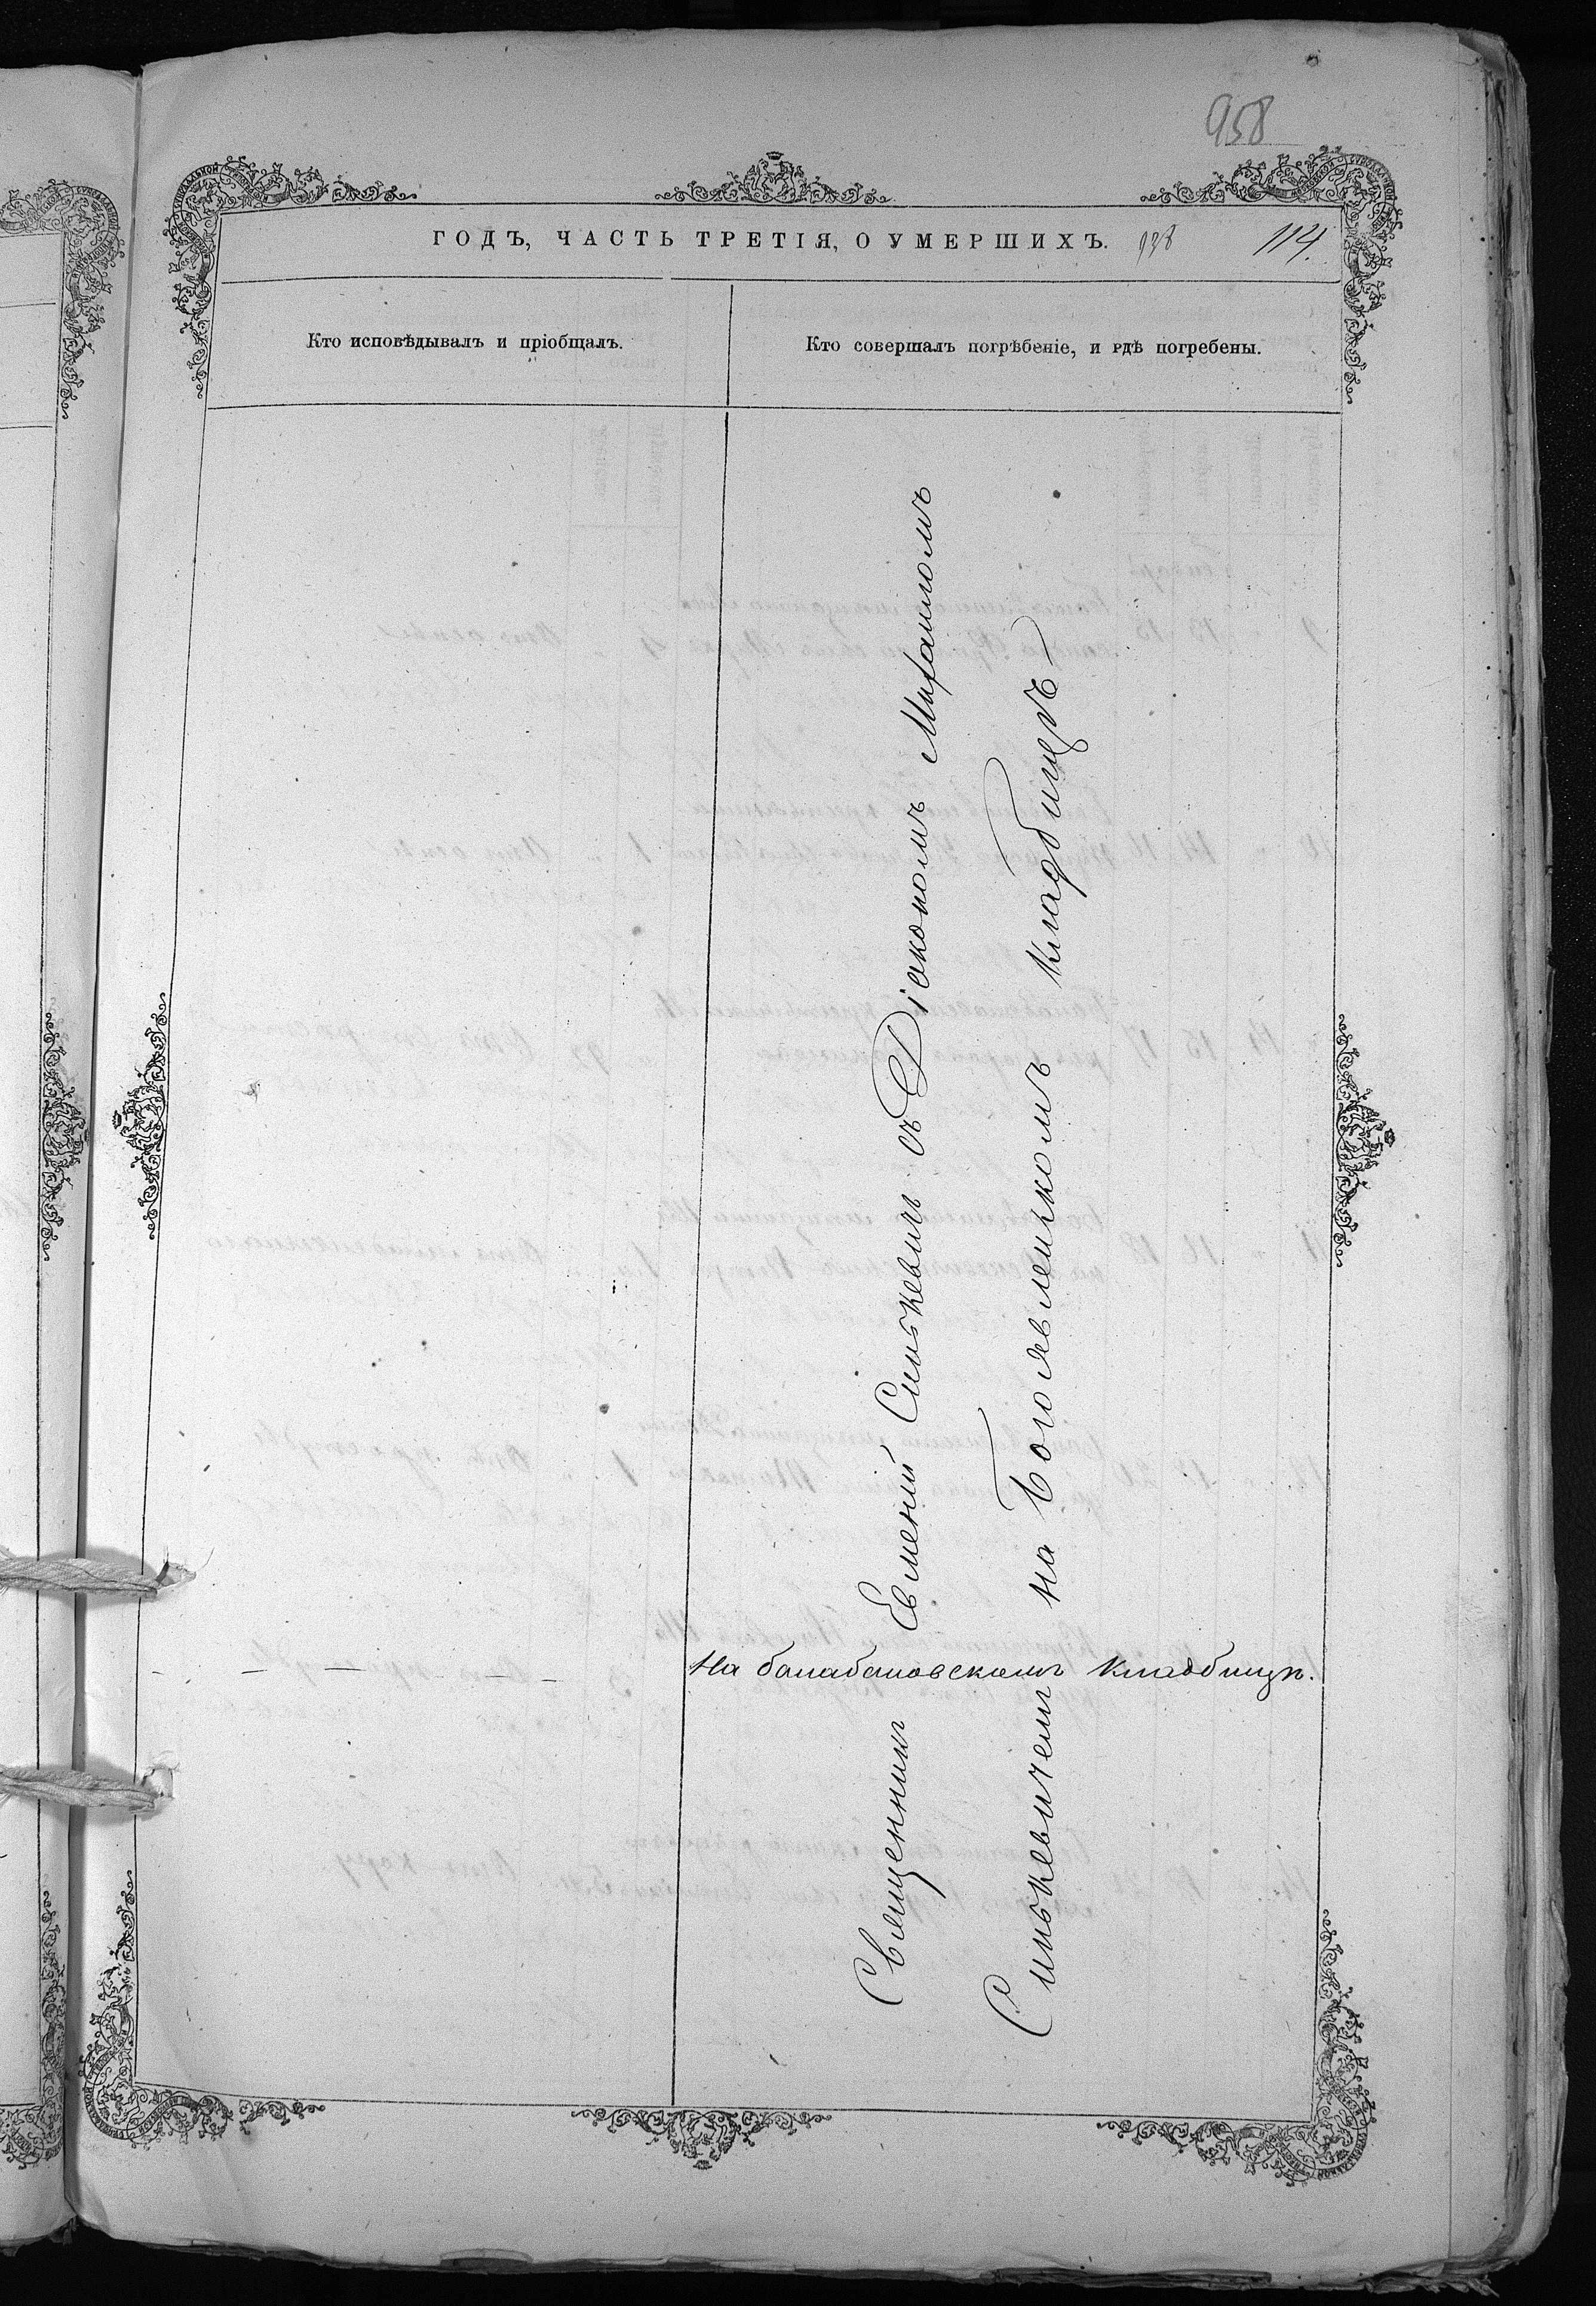 958
ГОДЪ, ЧАСТЬ ТРЕТІЯ, О УМЕРШИХЪ. 938 114.
Кто исповѣдывалъ и пріобщалъ.
Кто совершалъ погрѣбеніе, и гдѣ погребены.
Священник Евмений Синькевич съ Діакономъ Михаиломъ
Синькевичем на Богоявленскомъ кладбищѣ
На балабановскомъ кладбищѣ.